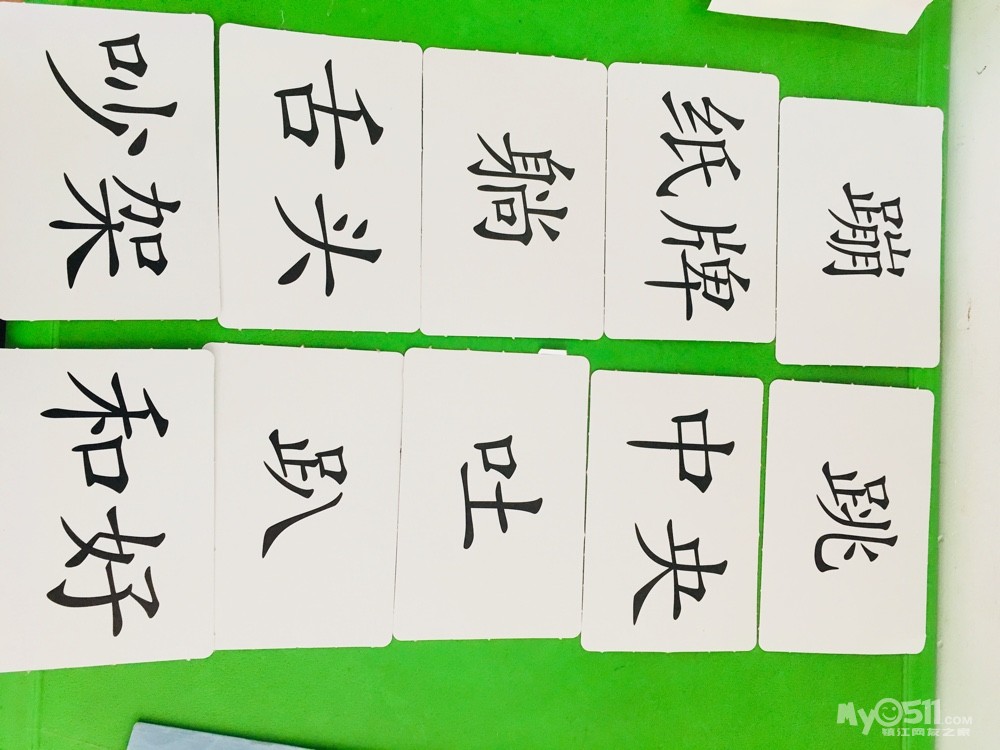 蹦
跳
纸牌
中央
躺
吐
舌头
趴
吵架
和好
My0511.COM
镇江网友之家